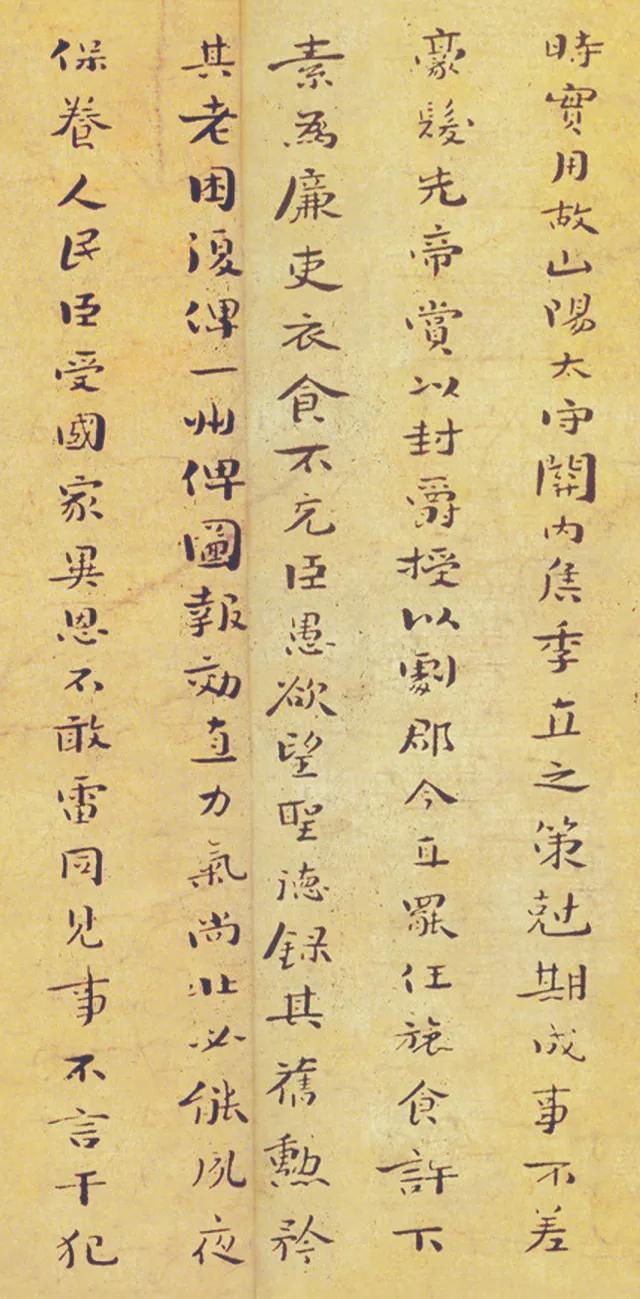 時實用故山陽太守關內侯季直之策尅期成事不差
豪髮先帝賞以封爵授以劇郡今直罷任旅食許下
素為廉吏衣食不充臣愚欲望聖德錄其舊勳矜
其老困復俾一州俾圖報效直力氣尚壯必能夙夜
保養人民臣受國家異恩不敢雷同見事不言干犯